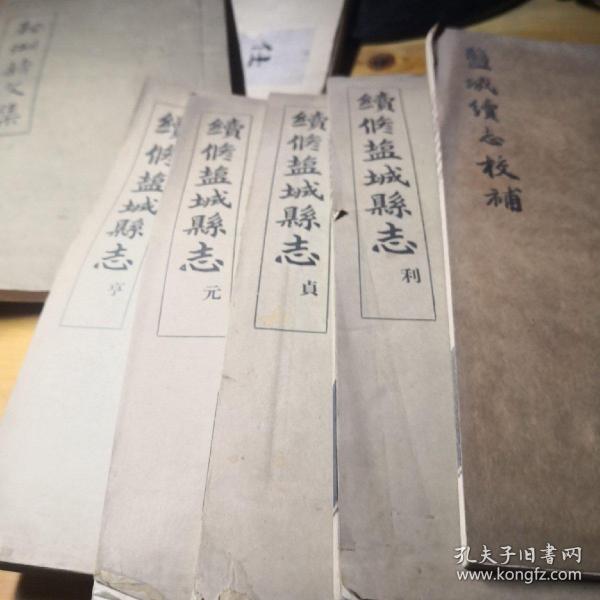 續修鹽城縣志
亨
續修鹽城縣志
元
續修鹽城縣志
貞
續修鹽城縣志
利
鹽城續志校補
孔夫子旧书网
www.kongfz.com